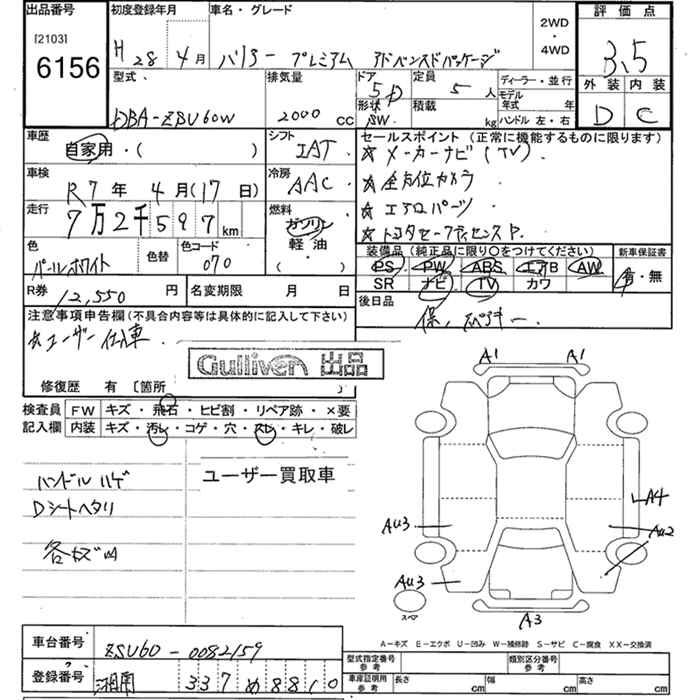 出品番号
[2103]
6156
初度登録年月
H 28 年 4月
車名・グレード
ハリアー プレミアム アドバンスドパッケージ
2WD
・
4WD
評価点
3.5
外装 内装
D C
型式
DBA-ZSU60W
排気量
2000 cc
ドア
5D
形状
SW
定員
5 人
積載
kg
ディーラー・並行
モデル
年式 年
ハンドル 左・右
車歴
自家用・( )
シフト
IAT
セールスポイント (正常に機能するものに限ります)
☆ メーカーナビ(TV)
☆ 全方位カメラ
☆ エアロパーツ
☆ トヨタセーフティセンスP.
車検
R7年 4月(17日)
冷房
AAC
走行
7万2千597km
燃料
ガソリン
軽油
( )
色
パールホワイト
色替
色コード
070
装備品 (純正品に限り○をつけてください)
PS PW ABS エアB AW
SR ナビ TV カワ
新車保証書
有・無
R券 12,550 円
名変期限 月 日
後日品
保、スペアキー
注意事項申告欄(不具合内容等は具体的に記入して下さい)
☆ユーザー仕入車.
Gulliver 出品
修復歴 有 〔箇所 〕
検査員
記入欄
FW キズ・飛石・ヒビ割・リペア跡・×要
内装 キズ・汚レ・コゲ・穴・スレ・キレ・破レ
ハンドルハゲ
Dシートヘタリ
各キズ凹
ユーザー買取車
A1 A1
A4
AU3
AU2
AU3
スペア
A3
A-キズ E-エクボ U-凹み W-補修跡 S-サビ C-腐食 XX-交換済
車台番号 ZSU60-0082159
登録番号 湘南 337 め 8810
型式指定番号
参考
類別区分番号
参考
車庫証明用
参考
長さ cm 幅 cm 高さ cm